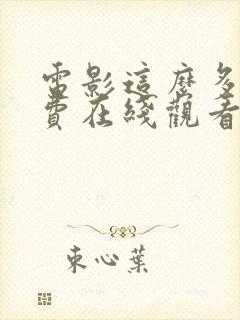 電影這麼多
費在綫觀看
束心葉